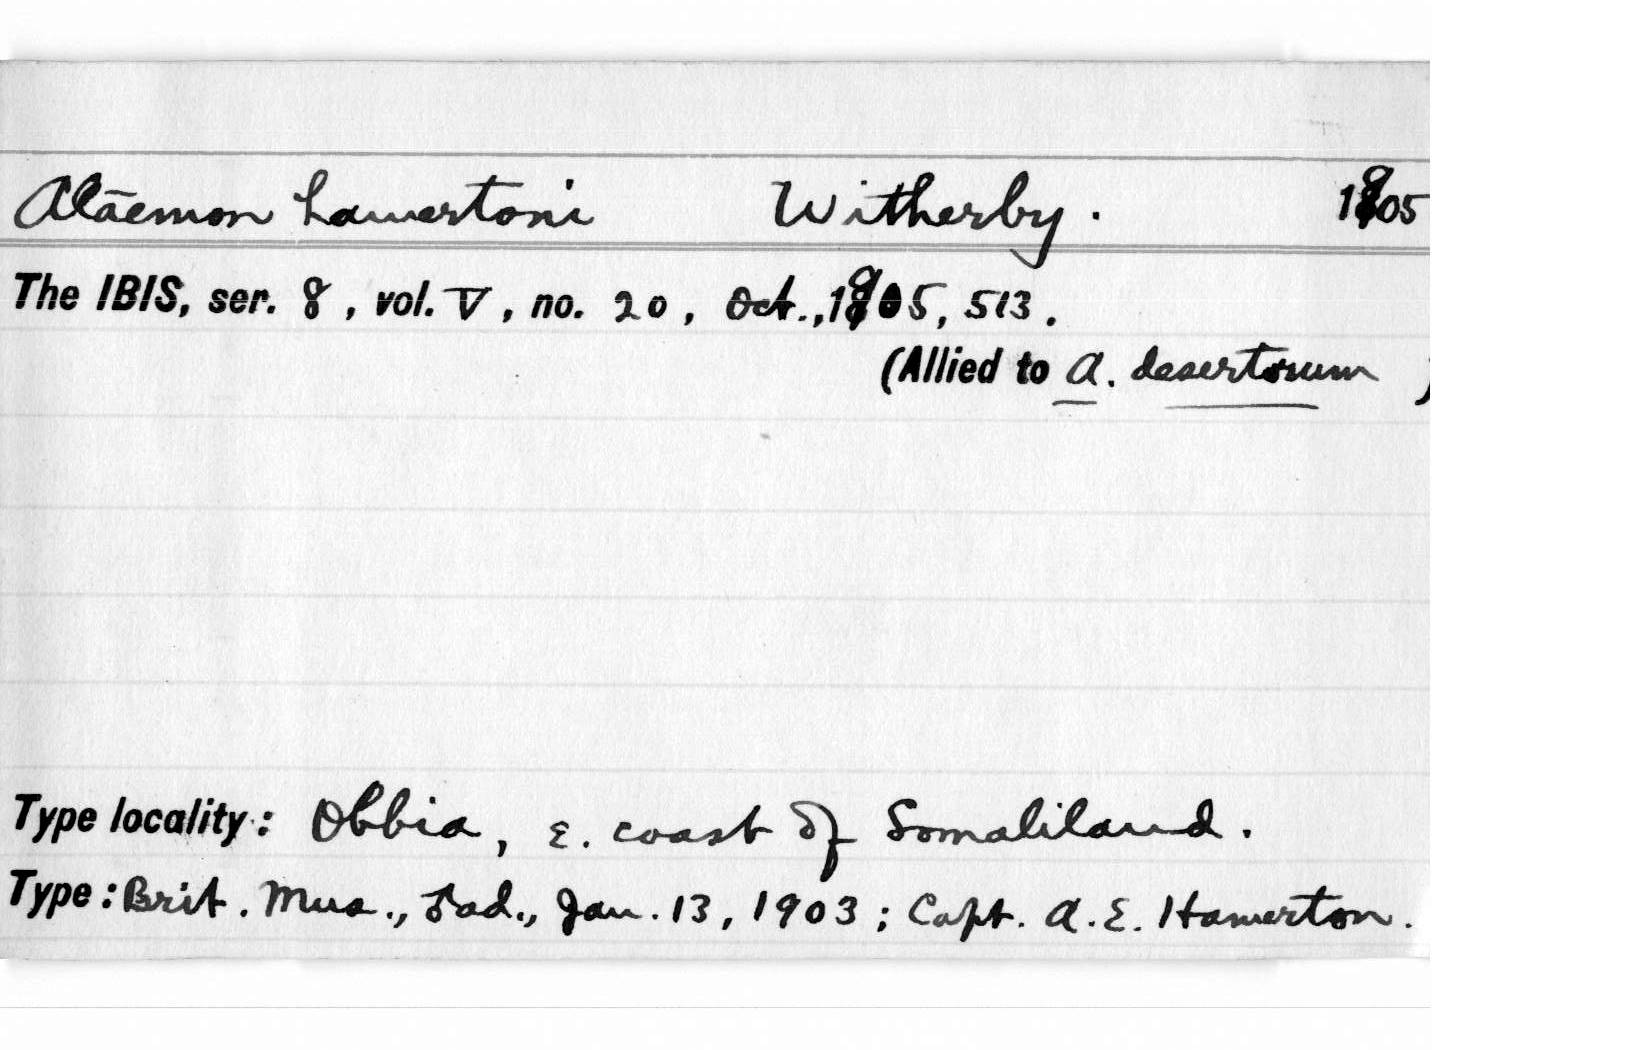 Alāemon hamertoni Witherby. 1905
The IBIS, ser. 8, vol. V, no. 20, Oct., 1905, 513.
(Allied to A. desertorum )
Type locality: Obbia, E. coast of Somaliland.
Type: Brit. Mus., ♂ad., Jan. 13, 1903; Capt. A. E. Hamerton.